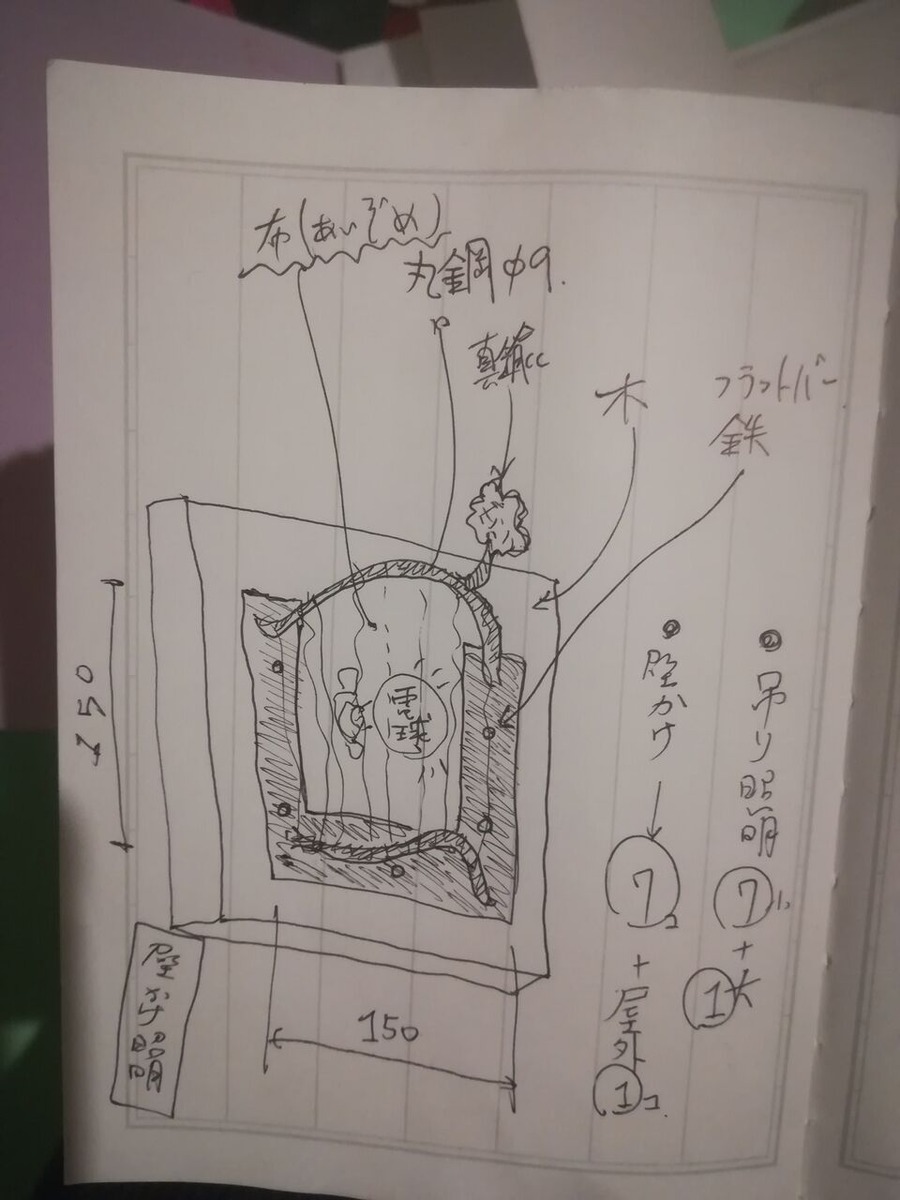 布(あいぞめ)
丸鋼 φ9.
真鍮
木
フラットバー
鉄
電球
150
150
●吊り照明⑦コ+①大
●壁かけ→⑦コ+屋外①コ.